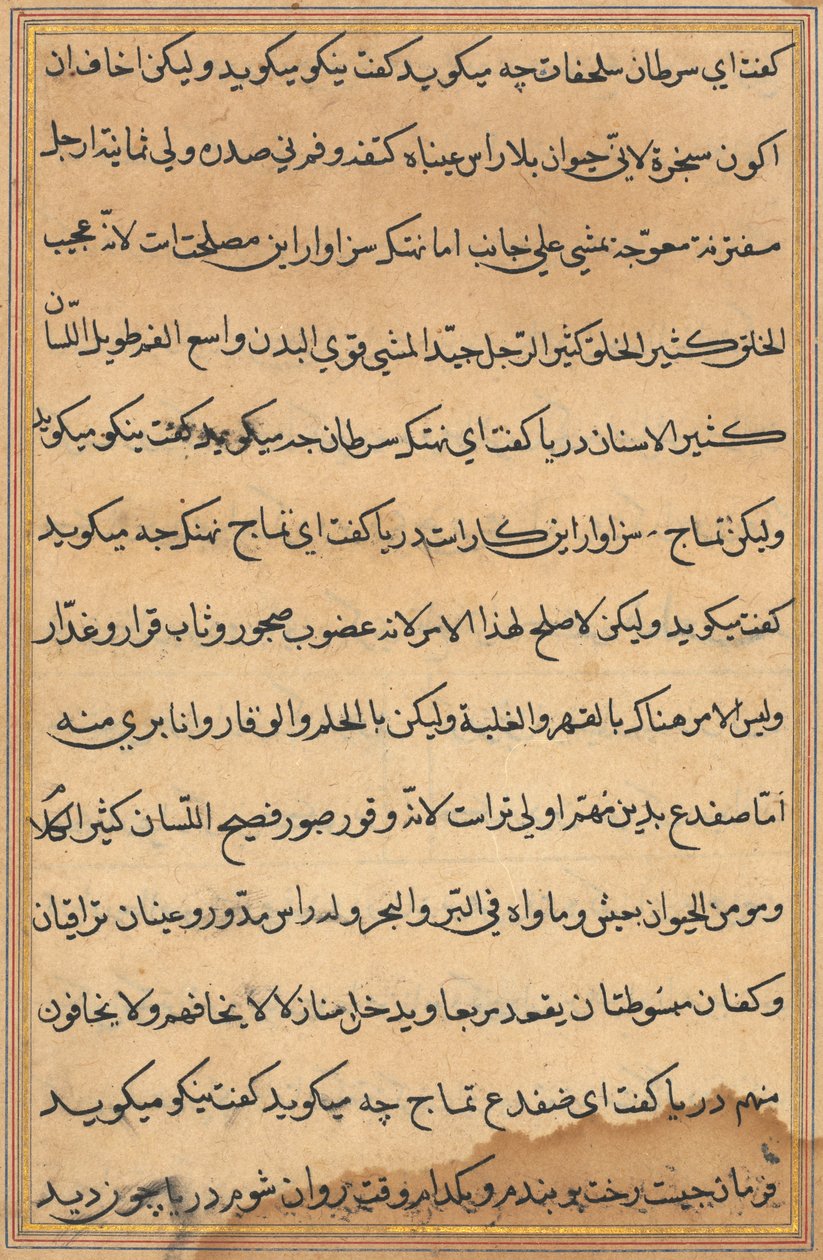 كفت اي سرطان سلحفات چه ميكويد كفت ينكو ميكويد وليكن اخاف ان
اكون سخرة لانّي حيوان بلا راس عيناه كتفه و فم في صدره ولي ثمانية ارجل
مفترنه معوّجة يمشي علي جانب اما نهتك سزاوار اين مصلحت است لانّه عجيب
الخلق كثير الخلق كثير الرّجل جيّد المشي قوي البدن واسع الفم طويل اللسّان
كثير الاسنان دريا كفت اي نهتك سرطان جه ميكويد كفت ينكو ميكويد
وليكن تماج سزاوار اين كار است دريا كفت اي تماج نهنك جه ميكويد
كفت ميكويد وليكن لا صلح لهذا الامر لانه عضوب صجور وثاب قرار و غدّار
وليس الامر هناك بالقهر والغلبة وليكن با الحلم والوقار وانا بري منه
امّا صفدع بدين مُهّم اولي تر است لانّه وقور صور فصيح اللّسان كثير الكلام
ومو من الحيوان بعيش وماواه في البّر والبحر وله راس مدّور و عينان تراقيان
وكفان مبسُوطتان يقعد مربعا ويدخل منازلا لا يخافهم ولا يخافون
منهم دريا كفت اى ضفدع تماج چه ميكويد كفت ينكو ميكويد
فرمان جيست رخت بر بندم و بكدام وقت روان شوم دريا چون ديد